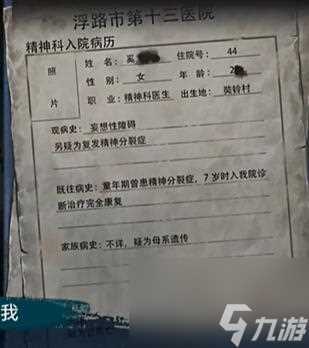 浮路市第十三医院
精神科入院病历
照片
姓名：奚
住院号：44
性别：女
年龄：2
职业：精神科医生
出生地：奘铃村
现病史：妄想性障碍
另疑为复发精神分裂症
既往病史：童年期曾患精神分裂症，7岁时入我院诊
断治疗完全康复
家族病史：不详，疑为母系遗传
我
九游